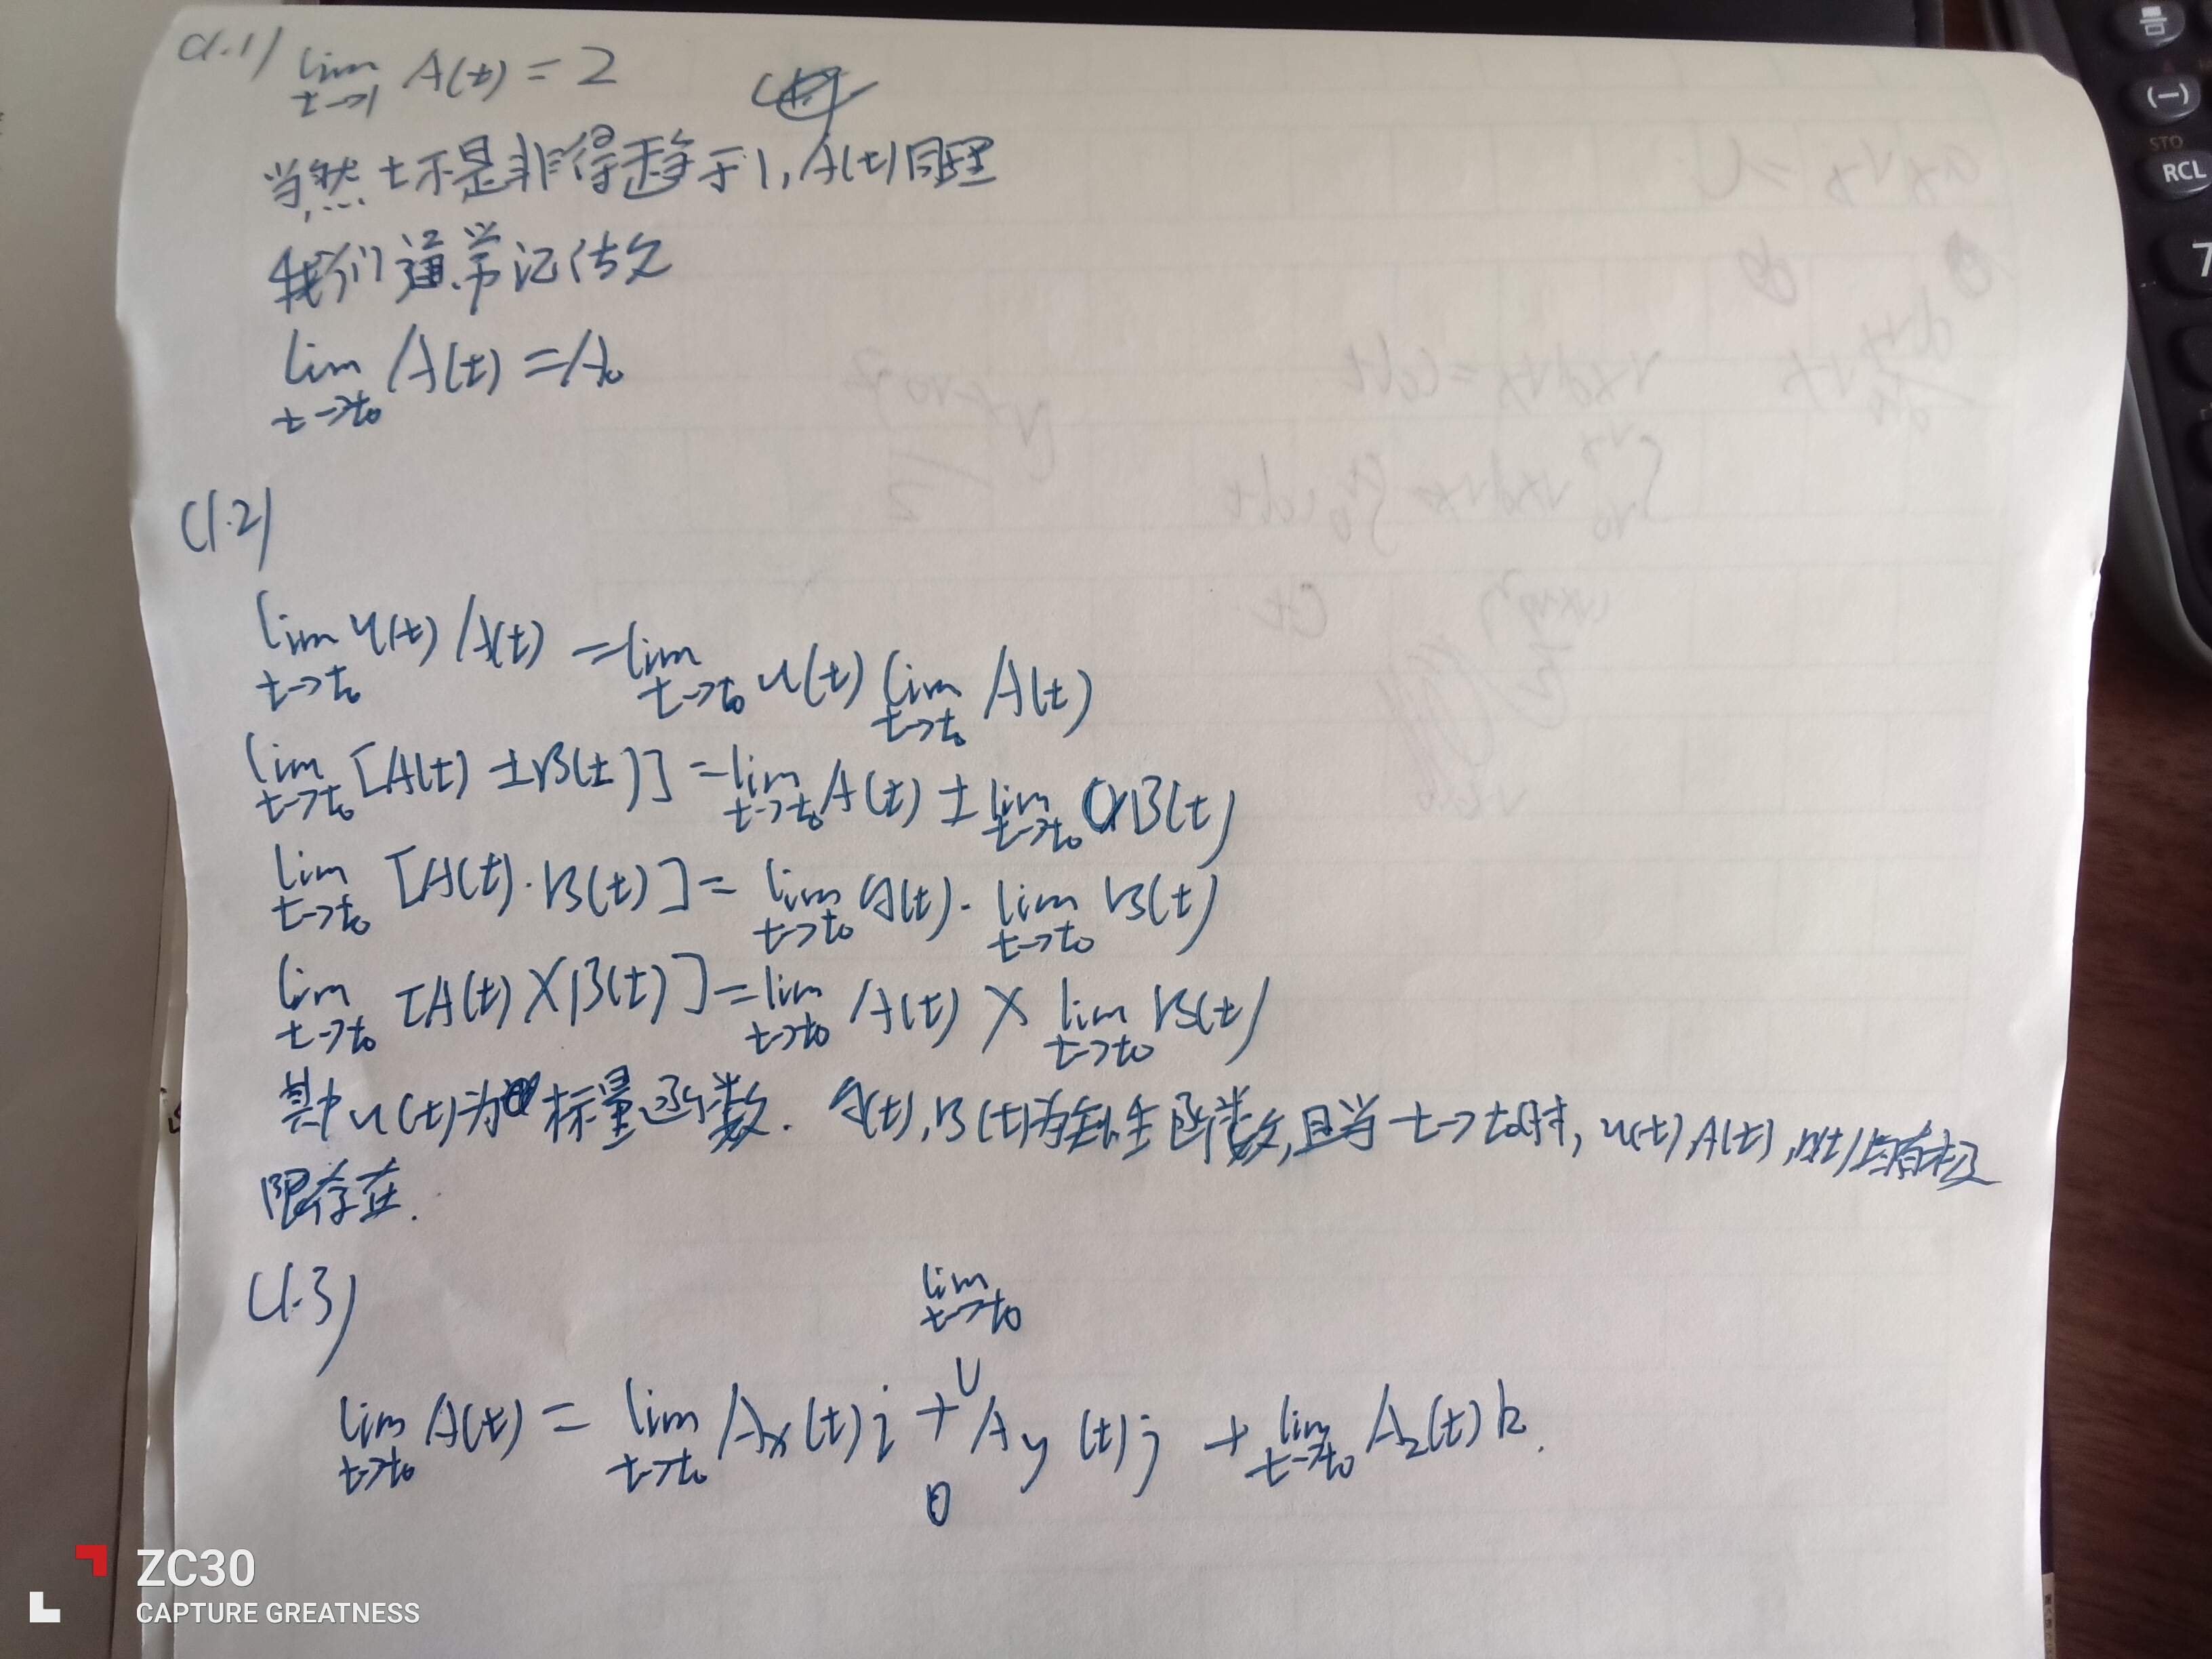 (1.1) lim t→1 A(t) = 2
当然 t不是非得趋于1, A(t)同理
我们通常记法父
lim t→t₀ A(t) = A₀
(1.2)
lim t→t₀ u(t) A(t) = lim t→t₀ u(t) lim t→t₀ A(t)
lim t→t₀ [A(t) ± B(t)] = lim t→t₀ A(t) ± lim t→t₀ B(t)
lim t→t₀ [A(t)·B(t)] = lim t→t₀ A(t)· lim t→t₀ B(t)
lim t→t₀ [A(t) × B(t)] = lim t→t₀ A(t) × lim t→t₀ B(t)
其中u(t)为标量函数. A(t), B(t)为函数,且当 t→t₀时, u(t), A(t), B(t)均有极
限存在.
(1.3)
lim t→t₀
lim t→t₀ A(t) = lim t→t₀ Ax(t)i + Ay(t)j + lim t→t₀ Az(t)k.
ZC30
CAPTURE GREATNESS
(−)
STO
RCL
7